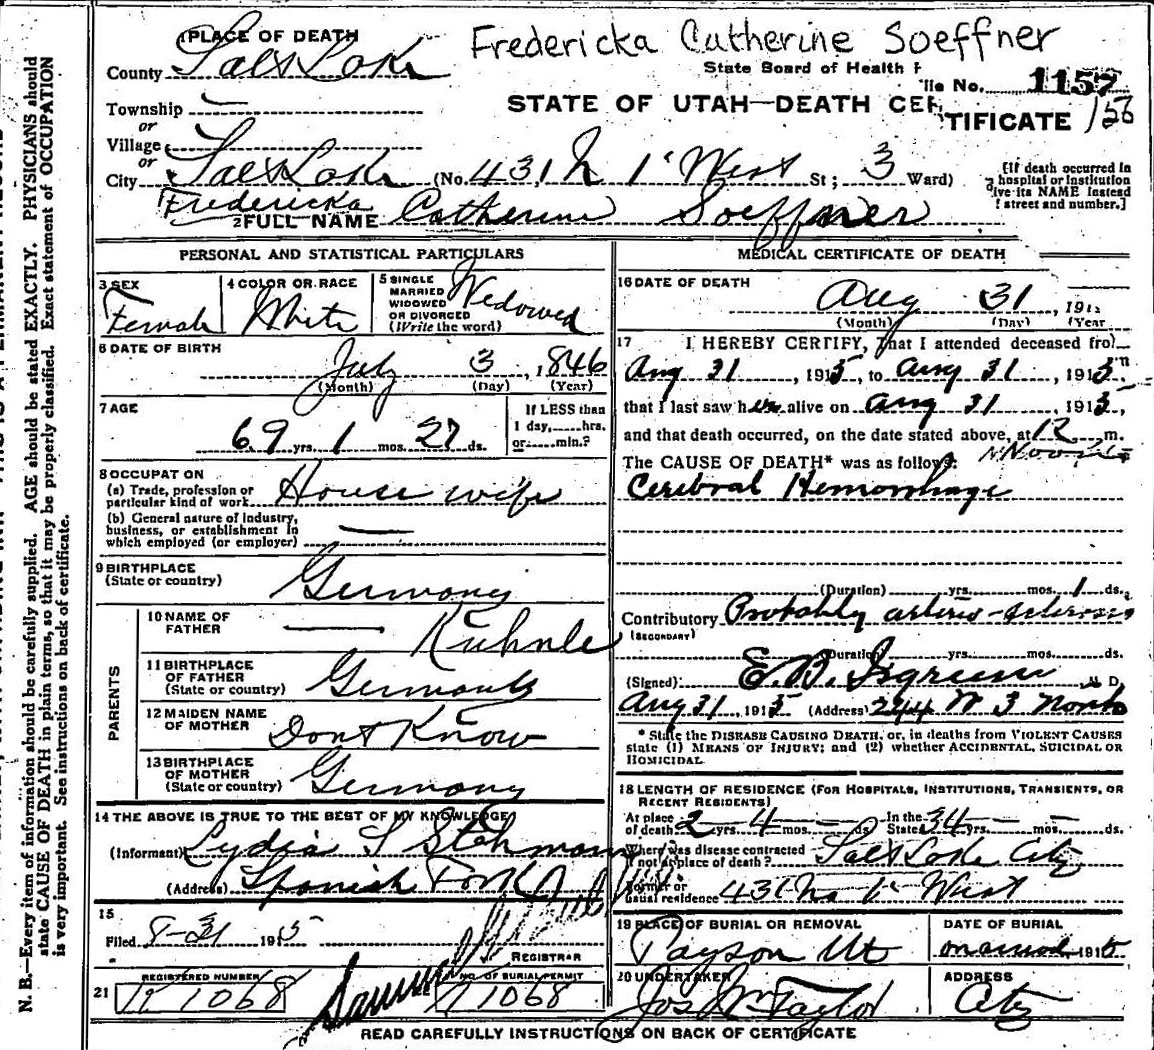 Fredericka Catherine Soeffner
PLACE OF DEATH
County Salt Lake
State Board of Health
File No. 1157
156
STATE OF UTAH—DEATH CERTIFICATE
Township —
or
Village
or
City Salt Lake (No. 431 N 1 West St; 3 Ward)
[If death occurred in hospital or institution give its NAME instead f street and number.]
Fredericka
2 FULL NAME Catherine Soeffner
PERSONAL AND STATISTICAL PARTICULARS
3 SEX
Female
4 COLOR OR RACE
White
5 SINGLE
MARRIED
WIDOWED
OR DIVORCED
(Write the word)
Wedowed
6 DATE OF BIRTH
July 3, 1846
(Month) (Day) (Year)
7 AGE
69 yrs. 1 mos. 27 ds.
If LESS than
1 day,.....hrs.
or.....min.?
8 OCCUPATION
(a) Trade, profession or
particular kind of work House wife
(b) General nature of industry,
business, or establishment in
which employed (or employer) —
9 BIRTHPLACE
(State or country) Germany
PARENTS
10 NAME OF
FATHER — Kuhnle
11 BIRTHPLACE
OF FATHER
(State or country) Germany
12 MAIDEN NAME
OF MOTHER Dont Know
13 BIRTHPLACE
OF MOTHER
(State or country) Germany
14 THE ABOVE IS TRUE TO THE BEST OF MY KNOWLEDGE
(Informant) Lydia S Stehman
(Address) Spanish Fork
15
Filed 8-31 1915
REGISTRAR
21
REGISTERED NUMBER
1068
NO. OF BURIAL PERMIT
1068
MEDICAL CERTIFICATE OF DEATH
16 DATE OF DEATH
Aug 31, 191
(Month) (Day) (Year
17 I HEREBY CERTIFY, That I attended deceased from
Aug 31, 1915, to Aug 31, 1915,
that I last saw her alive on Aug 31 1915,
and that death occurred, on the date stated above, at 12 m.
Noon
The CAUSE OF DEATH* was as follows:
Cerebral Hemorrhage
(Duration) — yrs. — mos. 1 ds.
Contributory Probably arterio-sclerosis
(SECONDARY)
(Duration) yrs. mos. ds.
(Signed) E. B. M. D.
Aug 31, 1915 (Address) 244 W 3 North
* State the DISEASE CAUSING DEATH, or, in deaths from VIOLENT CAUSES
state (1) MEANS OF INJURY; and (2) whether ACCIDENTAL, SUICIDAL OR
HOMICIDAL
18 LENGTH OF RESIDENCE (FOR HOSPITALS, INSTITUTIONS, TRANSIENTS, OR
RECENT RESIDENTS)
At place
of death 2 yrs 4 mos. — ds. In the
State 34 yrs. — mos. — ds.
Where was disease contracted
if not at place of death? Salt Lake City
Former or
usual residence 431 No 1 West
19 PLACE OF BURIAL OR REMOVAL
Payson Ut
DATE OF BURIAL
1915
20 UNDERTAKER
Jos Wm Taylor
ADDRESS
City
READ CAREFULLY INSTRUCTIONS ON BACK OF CERTIFICATE
N. B.—Every item of information should be carefully supplied. AGE should be stated EXACTLY. PHYSICIANS should
state CAUSE OF DEATH in plain terms, so that it may be properly classified. Exact statement of OCCUPATION
is very important. See instructions on back of certificate.